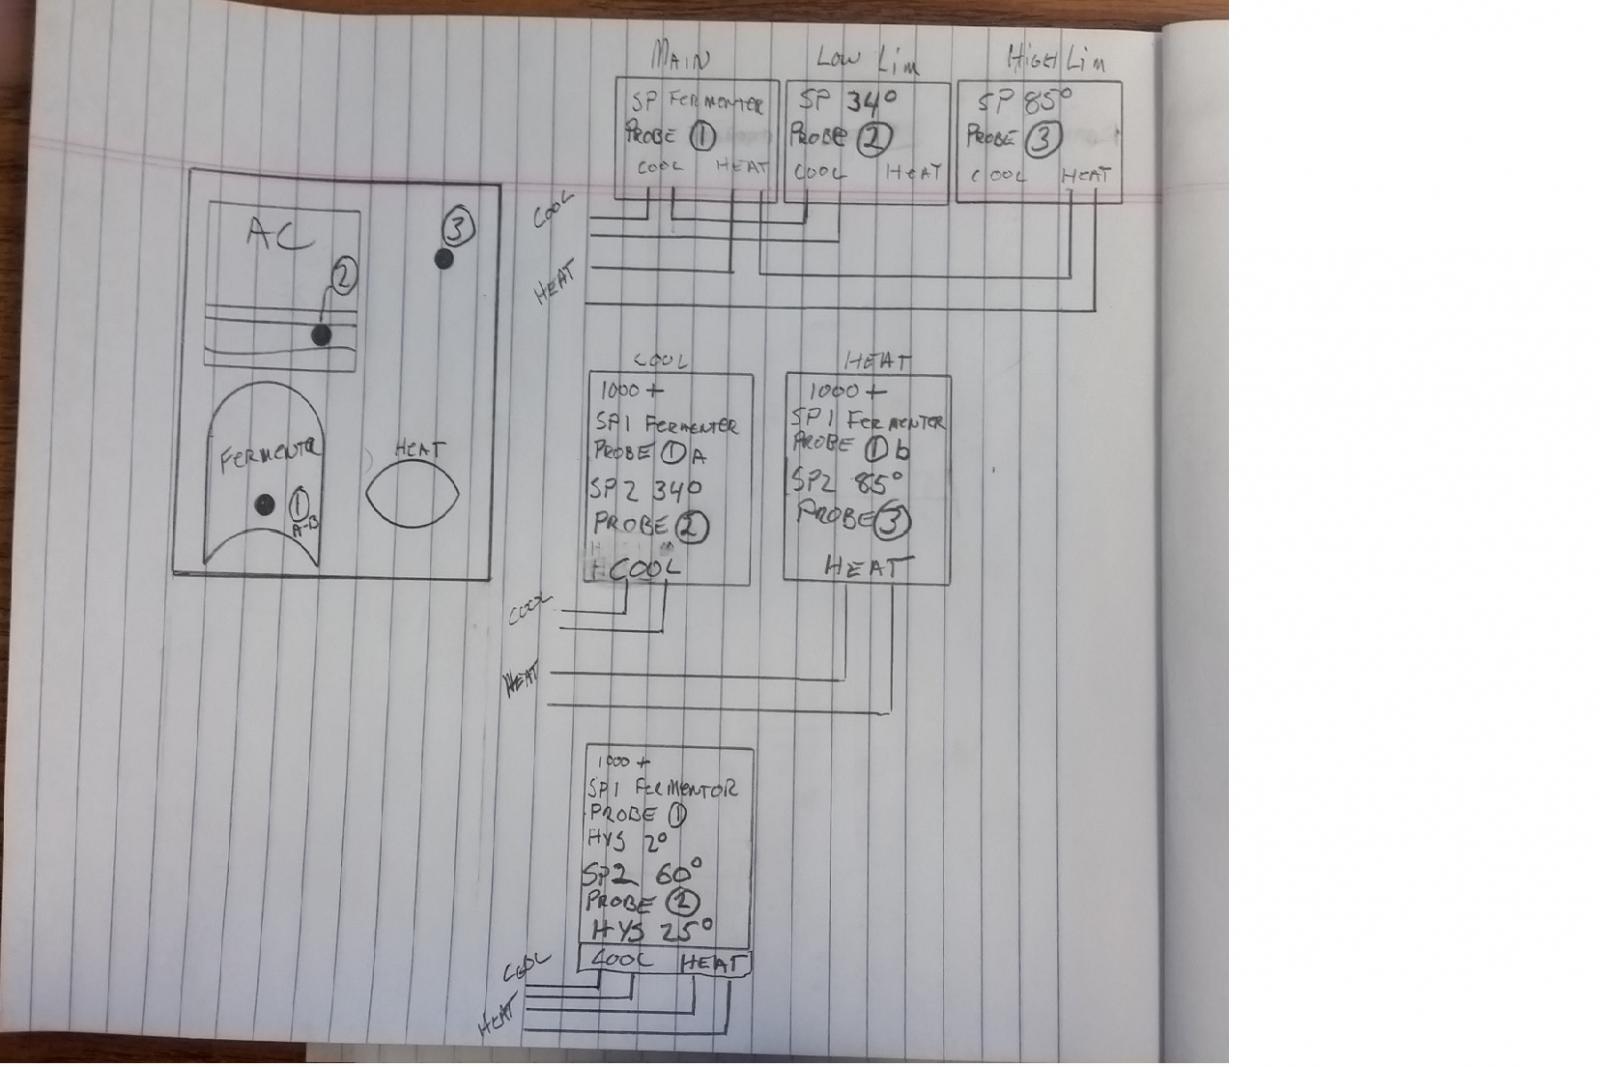 MAIN
LOW LIM
HIGH LIM
SP FERMENTER
PROBE 1
COOL HEAT
SP 34°
PROBE 2
COOL HEAT
SP 85°
PROBE 3
COOL HEAT
COOL
HEAT
AC
2
3
FERMENTR
1
A-B
HEAT
COOL
1000 +
SP1 FERMENTER
PROBE 1 A
SP2 34°
PROBE 2
COOL
HEAT
1000 +
SP1 FERMENTER
PROBE 1 b
SP2 85°
PROBE 3
HEAT
COOL
HEAT
1000 +
SP1 FERMENTOR
PROBE 1
HYS 2°
SP2 60°
PROBE 2
HYS 25°
COOL HEAT
COOL
HEAT